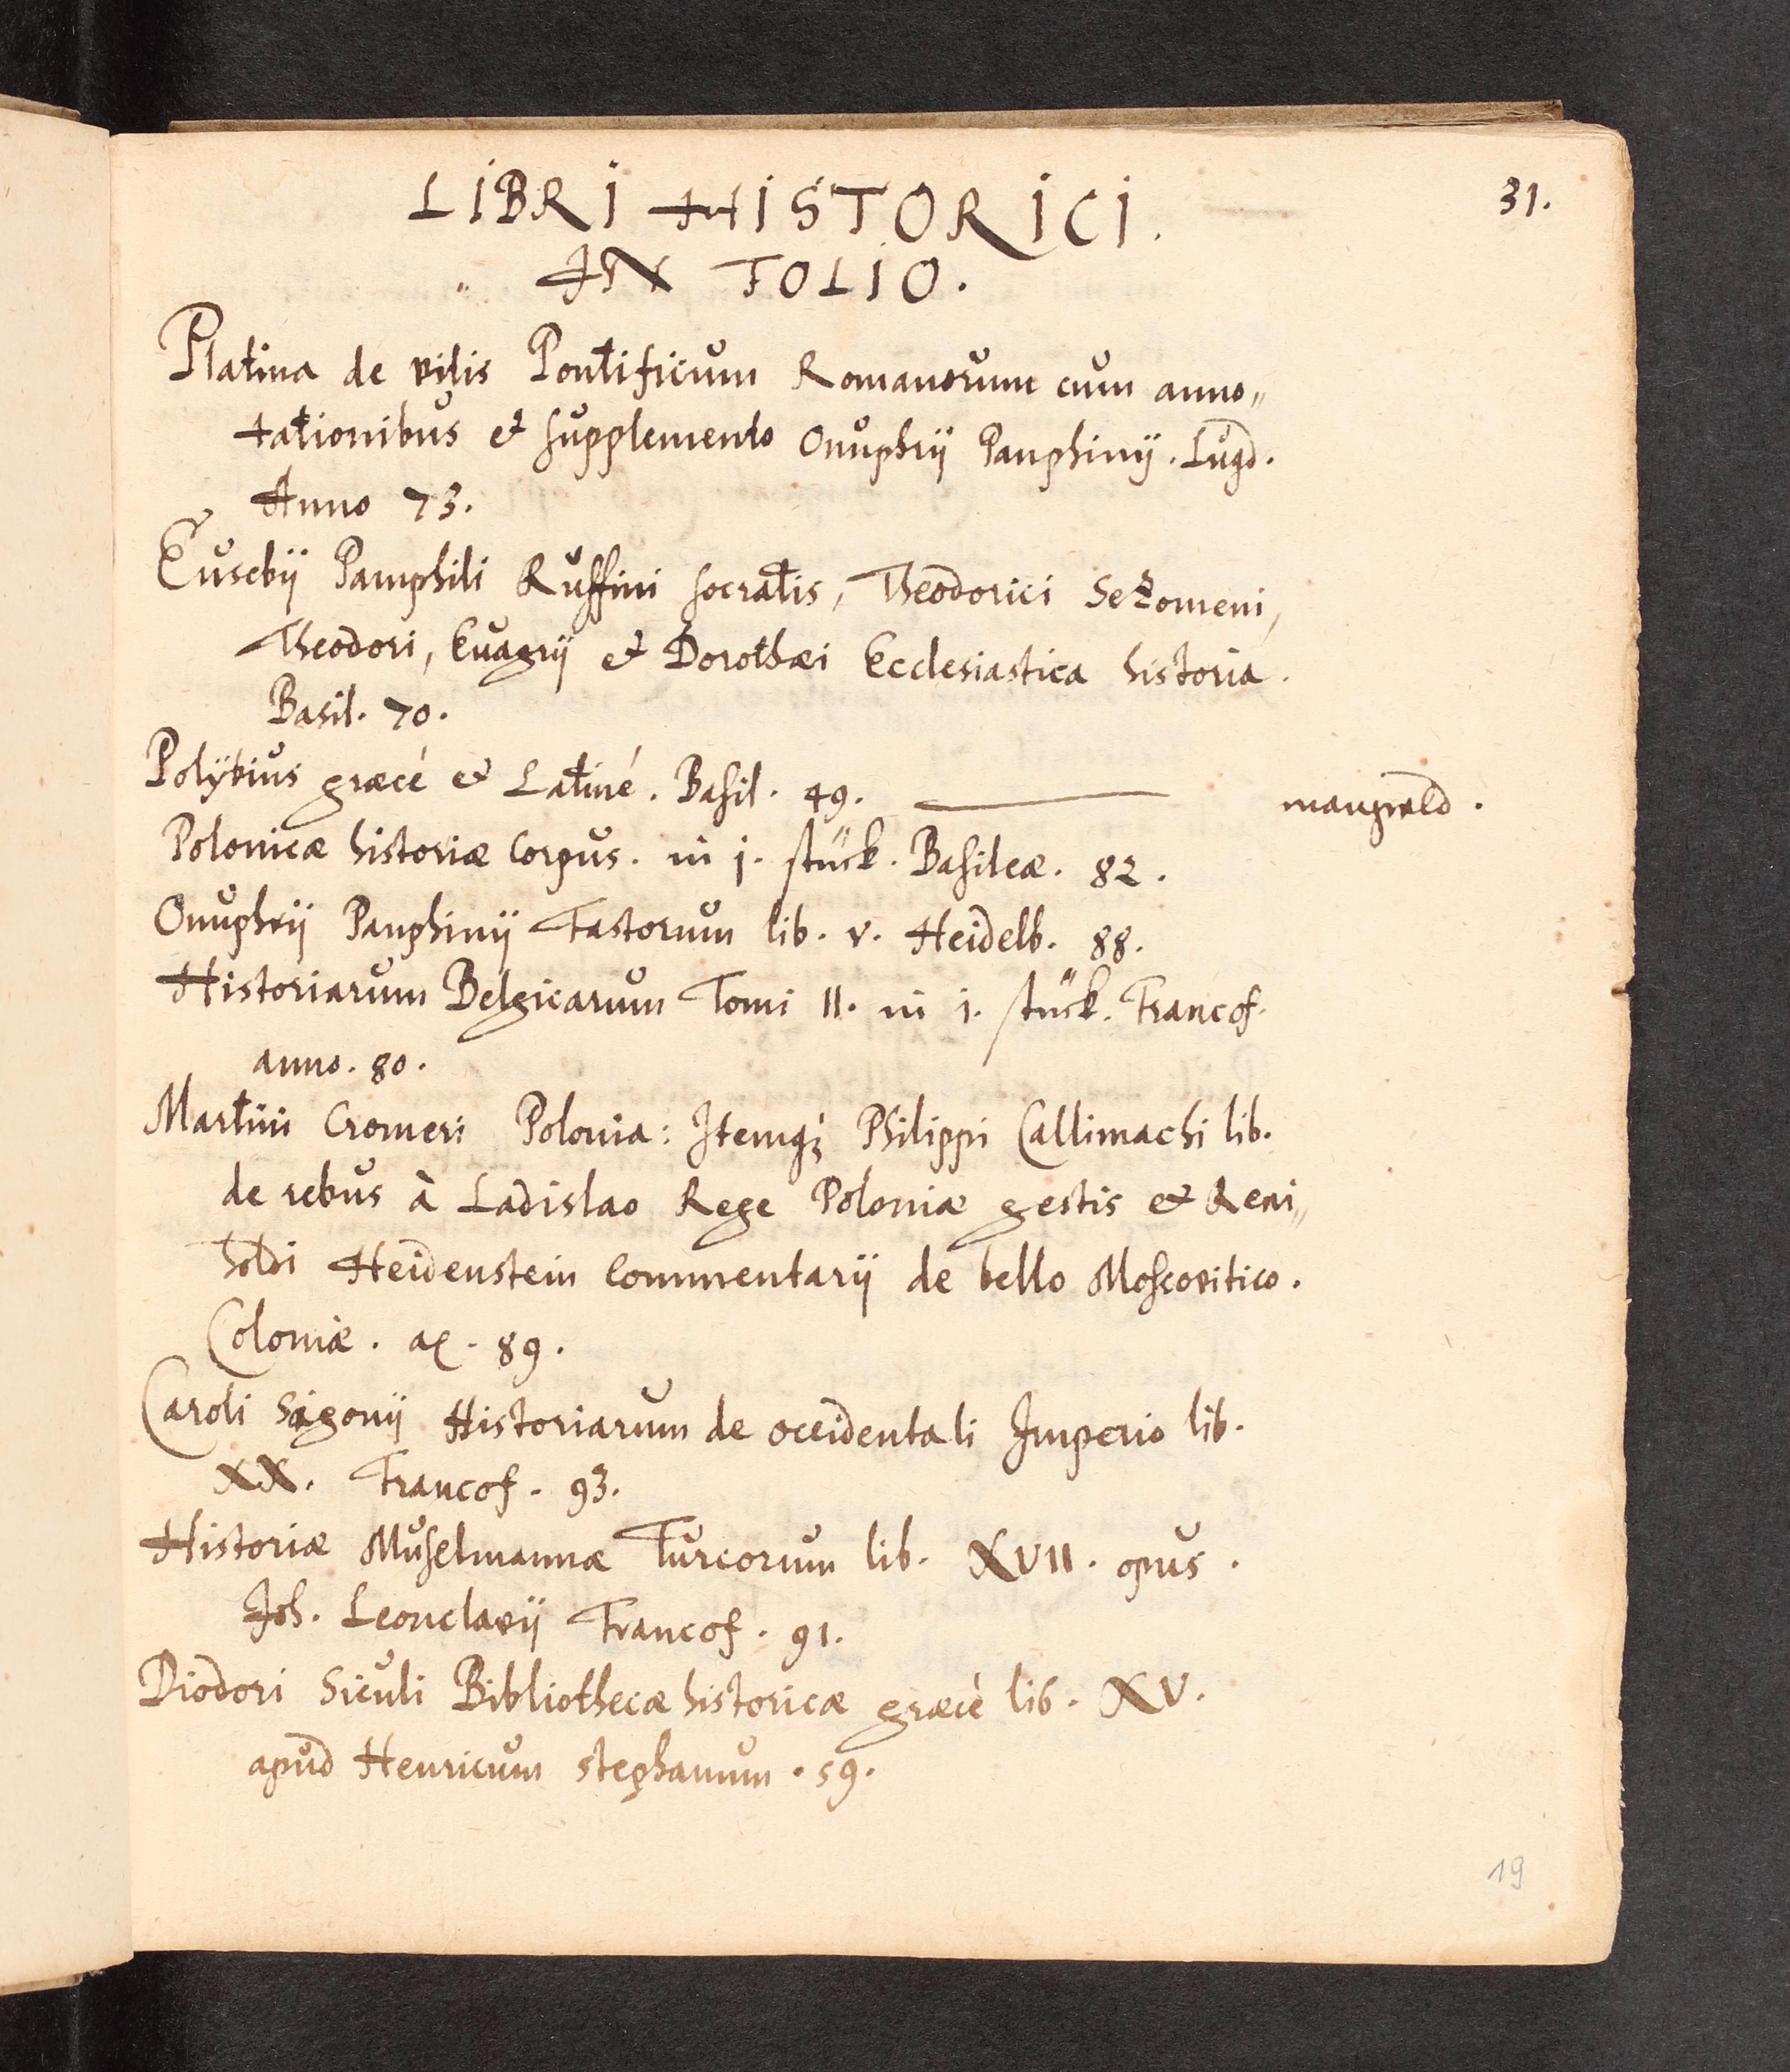 31.
LIBRI HISTORICI.
IN FOLIO.
Platina de vitis Pontificum Romanorum cum anno„
tationibus et supplemento Onuphrij Panphinij. Lugd.
Anno 73.
Eusebij Pamphili Ruffini Socratis, Theodorici Sezomeni,
Theodori, Euagrij et Dorothæi Ecclesiastica historia.
Basil. 70.
Polÿbius græcé et Latiné. Basil. 49. mangweld.
Polonicæ historiæ Corpus. in j. stück. Basileæ. 82.
Onuphrij Panphinij Fastorum lib. V. Heidelb. 88.
Historiarum Belgicarum Tomi II. in 1. stück. Francof.
anno. 80.
Martini Cromeri Polonia: Itemq́; Philippi Callimachi lib.
de rebus à Ladislao Rege Poloniæ gestis et Reni„
holdi Heidenstein Commentarij de bello Moscovitico.
Coloniæ. 89.
Caroli Sigonij Historiarum de occidentali Imperio lib.
XX. Francof. 93.
Historiæ Muselmannæ Turcorum lib. XVII. opus.
Joh. Leonclavij Francof. 91.
Diodori Siculi Bibliothecæ historicæ græcè lib. XV.
apud Henricum Stephanum. 59.
19